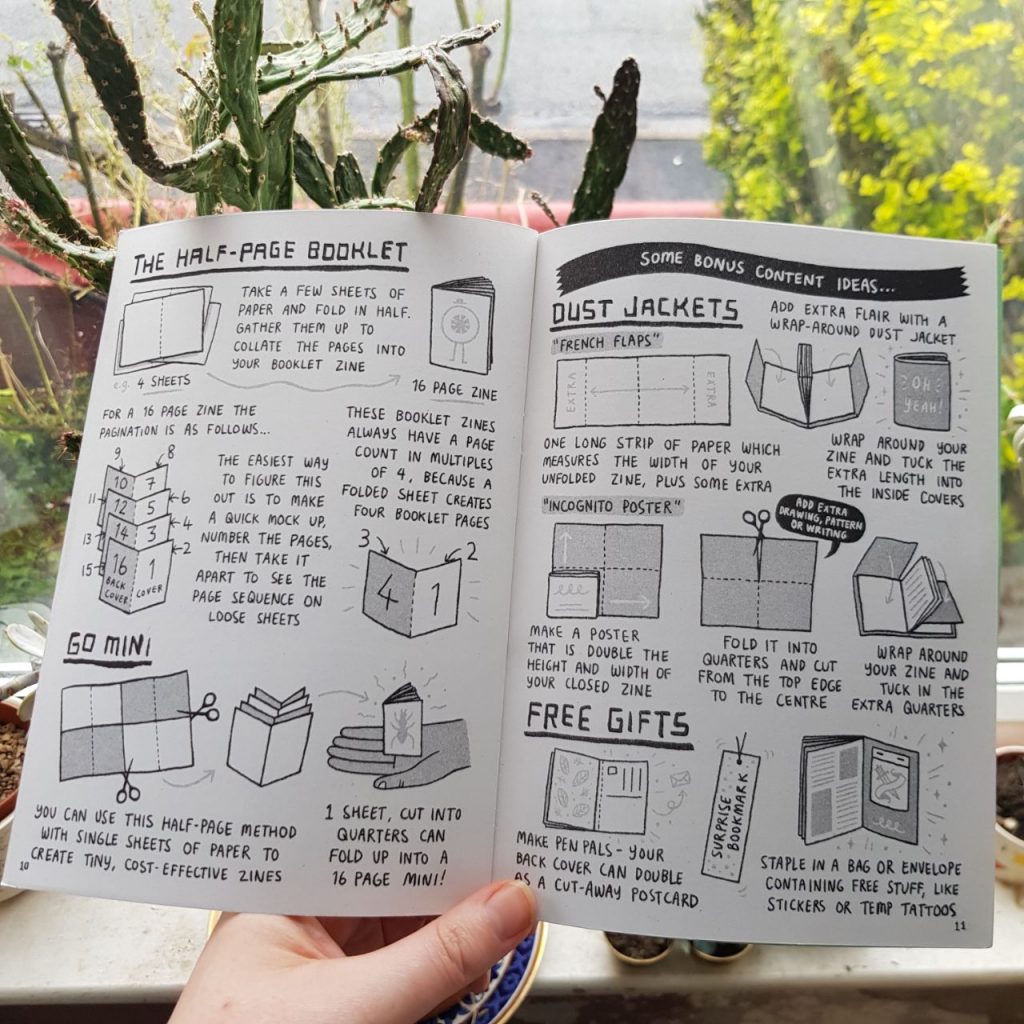 THE HALF-PAGE BOOKLET
TAKE A FEW SHEETS OF
PAPER AND FOLD IN HALF.
GATHER THEM UP TO
COLLATE THE PAGES INTO
YOUR BOOKLET ZINE
e.g. 4 SHEETS
16 PAGE ZINE
FOR A 16 PAGE ZINE THE
PAGINATION IS AS FOLLOWS...
9
8
10 7
11
12 5
6
14 3
4
13
16 1
2
15
BACK
COVER
COVER
THE EASIEST WAY
TO FIGURE THIS
OUT IS TO MAKE
A QUICK MOCK UP,
NUMBER THE PAGES,
THEN TAKE IT
APART TO SEE THE
PAGE SEQUENCE ON
LOOSE SHEETS
THESE BOOKLET ZINES
ALWAYS HAVE A PAGE
COUNT IN MULTIPLES
OF 4, BECAUSE A
FOLDED SHEET CREATES
FOUR BOOKLET PAGES
3
2
4 1
GO MINI
YOU CAN USE THIS HALF-PAGE METHOD
WITH SINGLE SHEETS OF PAPER TO
CREATE TINY, COST-EFFECTIVE ZINES
1 SHEET, CUT INTO
QUARTERS CAN
FOLD UP INTO A
16 PAGE MINI!
10
SOME BONUS CONTENT IDEAS...
DUST JACKETS
ADD EXTRA FLAIR WITH A
WRAP-AROUND DUST JACKET
"FRENCH FLAPS"
EXTRA
EXTRA
OH
YEAH!
ONE LONG STRIP OF PAPER WHICH
MEASURES THE WIDTH OF YOUR
UNFOLDED ZINE, PLUS SOME EXTRA
WRAP AROUND YOUR
ZINE AND TUCK THE
EXTRA LENGTH INTO
THE INSIDE COVERS
"INCOGNITO POSTER"
ADD EXTRA
DRAWING, PATTERN
OR WRITING
MAKE A POSTER
THAT IS DOUBLE THE
HEIGHT AND WIDTH OF
YOUR CLOSED ZINE
FOLD IT INTO
QUARTERS AND CUT
FROM THE TOP EDGE
TO THE CENTRE
WRAP AROUND
YOUR ZINE AND
TUCK IN THE
EXTRA QUARTERS
FREE GIFTS
SURPRISE
BOOKMARK
MAKE PEN PALS - YOUR
BACK COVER CAN DOUBLE
AS A CUT-AWAY POSTCARD
STAPLE IN A BAG OR ENVELOPE
CONTAINING FREE STUFF, LIKE
STICKERS OR TEMP TATTOOS
11